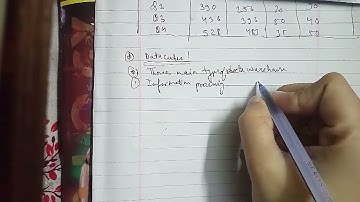 Q2 390 256 20 30
Q3 436 396 50 40
Q4 528 480 35 50
(d) Data cube!
(e) Three main types of data warehouse
(1) Information processing